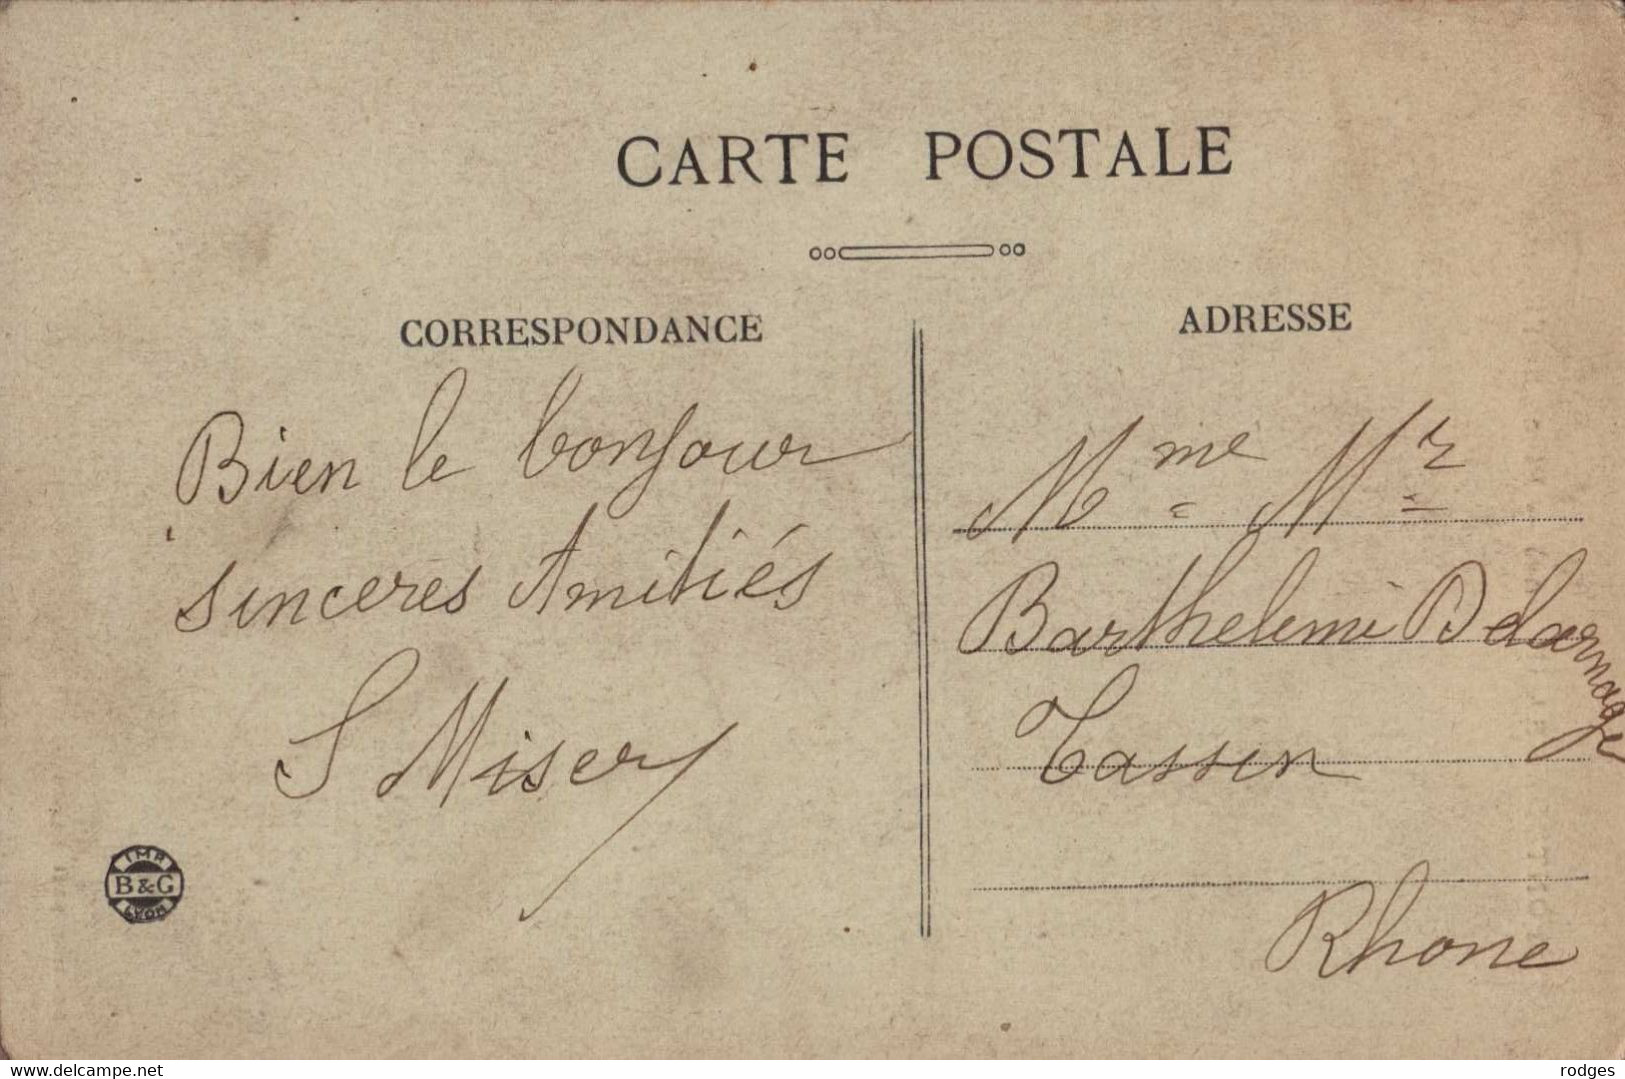 CARTE POSTALE
CORRESPONDANCE
Bien le bonjour
sinceres Amitiés
S Misery
IMP.
B & G
LYON
ADRESSE
Mme Mr
Barthelemi Delarnage
Tassin
Rhone
www.delcampe.net
rodges